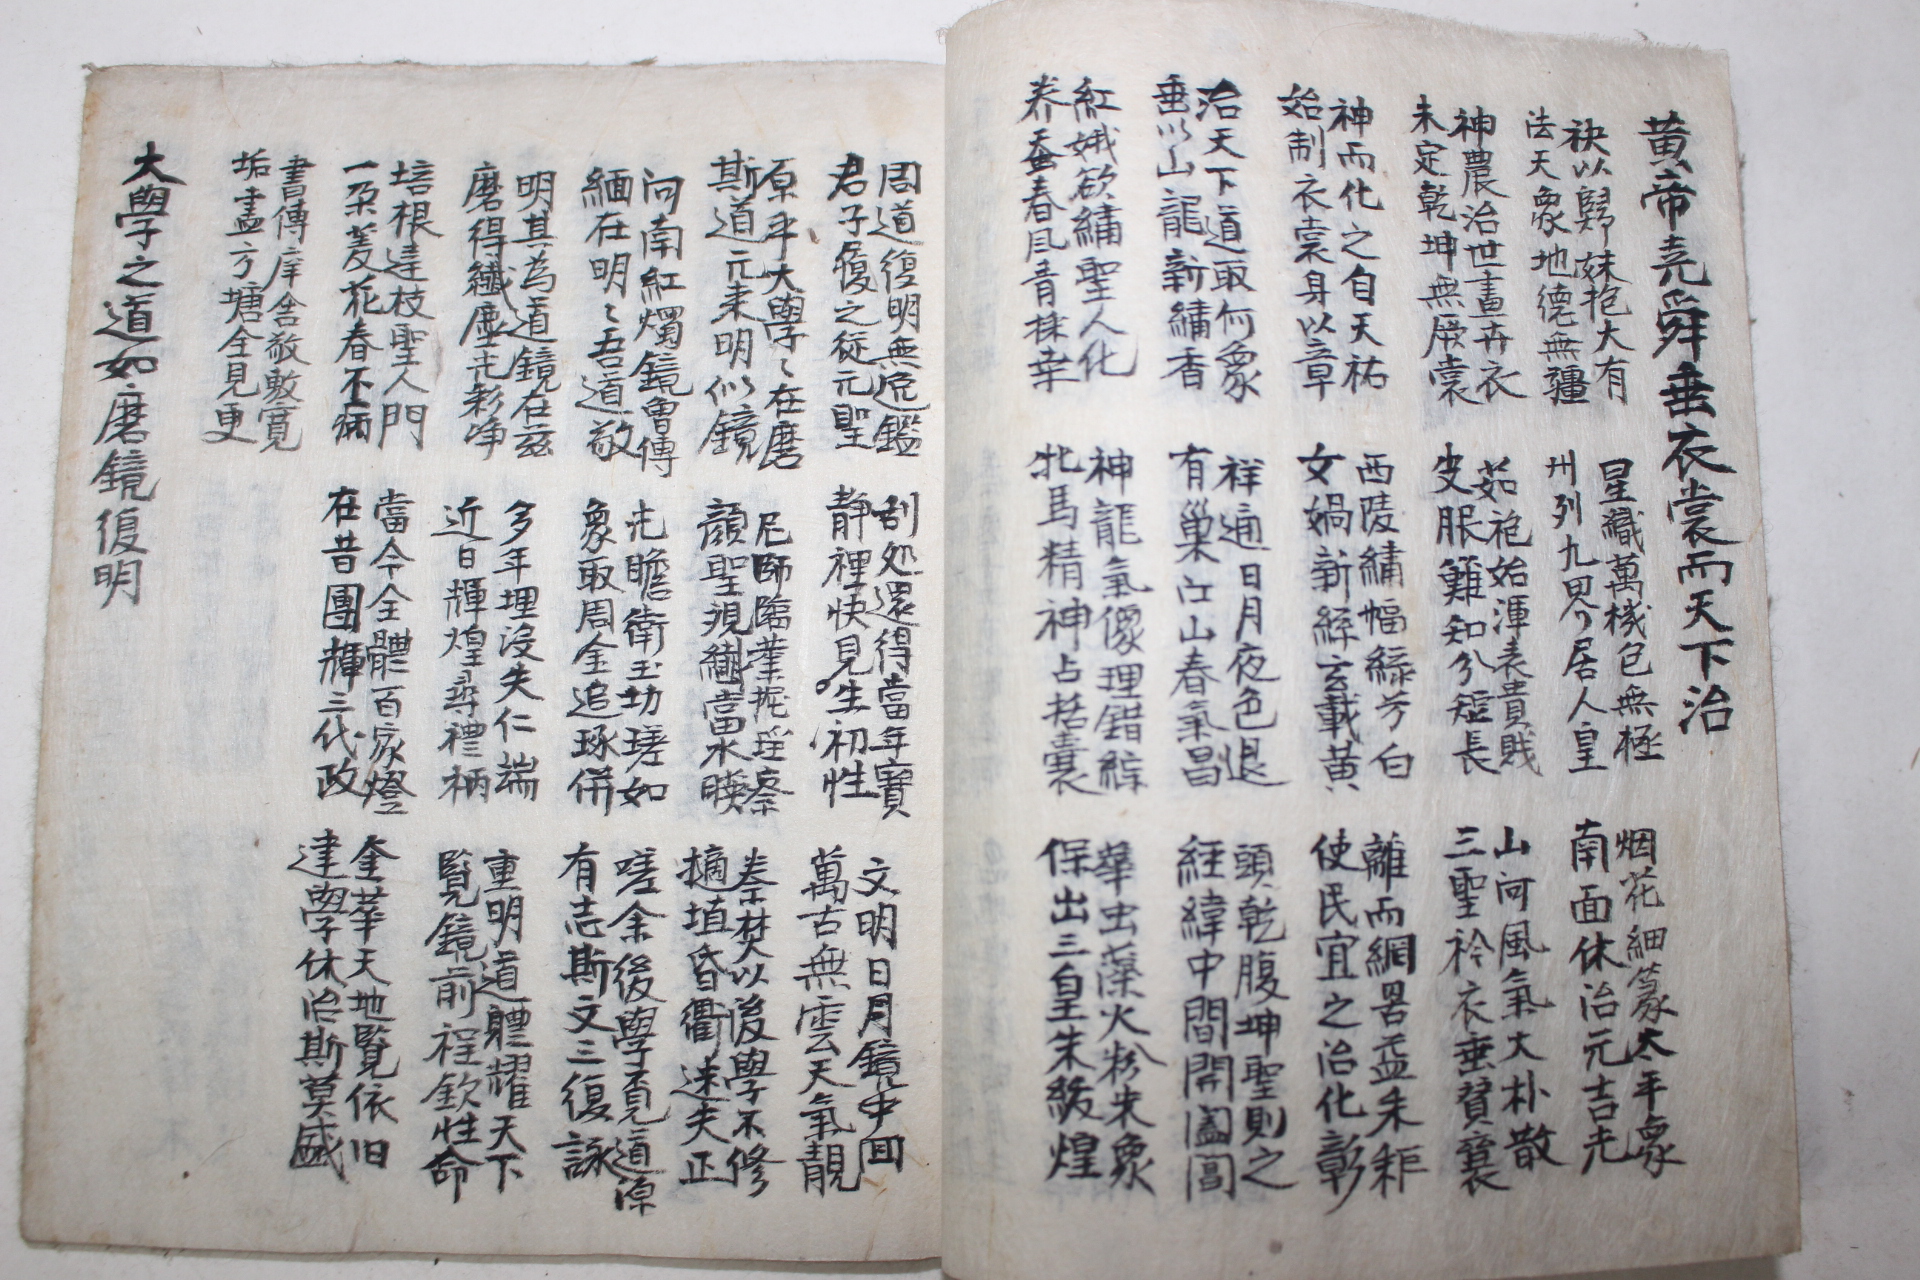 黃帝堯舜垂衣裳而天下治
袂以歸妹抱大有
法天象地德無疆
星織萬機包無極
卅列九界居人皇
烟花細篆太平象
南面休治元吉光
神農治世畫卉衣
未定乾坤無厥裳
茹袍始渾表貴賎
皮服難知分短長
山河風氣大朴散
三聖衿衣垂贊襄
神而化之自天祐
始制衣裳身以章
西陵繡幅綠兮白
女媧新絲玄載黃
離而網罟益耒耟
使民宜之治化彰
治天下道取何象
垂以山龍新繡香
祥通日月夜色退
有巢江山春氣昌
頭乾腹坤聖則之
經緯中間開闔閶
紅娥欲繡聖人化
养蚕春风青採桒
神龍氣像理錯綜
牝馬精神占括囊
華虫藻火粉米象
保出三皇朱紱煌
周道復明無危鑑
君子履之從元聖
刮処還得當年寶
静裡快見生初性
文明日月鏡中回
萬古無雲天氣靚
原乎大學〻在磨
斯道元来明似鏡
尼師臨業掘瑤察
顔聖視繡當水暎
秦焚以後學不修
擿埴昏衢迷失正
河南紅燭鏡曾傳
緬在明〻吾道敬
光瞻衛玉切磋如
象取周金追琢併
嗟余後學覓道源
有志斯文三復詠
明其為道鏡在茲
磨得纖塵光彩净
多年埋浸失仁端
近日輝煌尋禮柄
重明道體耀天下
覧鏡前程欽性命
培根達枝聖人門
一朶菱花春不病
當今全體百家燈
在昔團輝三代政
奎華天地覧依旧
建學休治斯莫盛
書傳庠舍敬敷寬
垢盡方塘全見更
大學之道如磨鏡復明